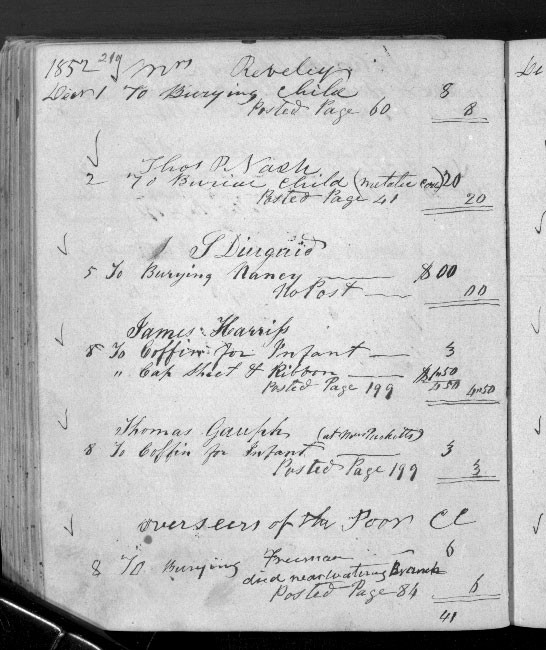 1852 219 Mrs Reveley
Decr 1 To Burying Child 8
Posted Page 60 8
Thos P. Nash
2 To Burial Child (metalic case) 20
Posted Page 41 20
S Diuguid
5 To Burying Nancy $00
No Post 00
James Harriss
8 To Coffin for Infant 3
" Cap Sheet & Ribbon $1.50
4 50
Posted Page 199 4.50
Thomas (at Mrs Pucketts)
8 To Coffin for Infant 3
Posted Page 199 3
overseers of the Poor CC
8 To Burying Freeman 6
died near watering Branch
Posted Page 84 6
41
De